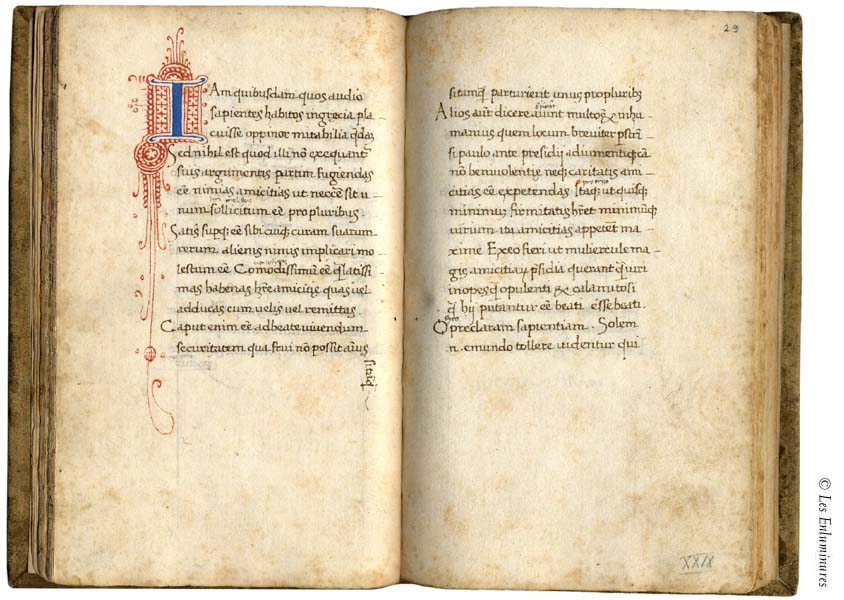 IAm quibusdam quos audio
sapientes habitos ingrecia pla
cuisse oppinor mirabilia q̃daʒ
Sed nihil est quod illi nõ exequant̃
suis argumentis partim fugiendas
eẽ nimias amicitias ut neccẽ sit u
num sollicitum eẽ pro pluribus.
Satis suꝑqʒ eẽ sibi cuiqʒ curam suarum
rerum alienis nimis implicari mo
lestum eẽ Comodissimũ eẽ q̃ laxissi
mas habenas hr̃e amicitię quas vel
adducas cum velis vel remittas.
Caput enim eẽ ad beate vivendum
securitatem qua frui nõ possit aĩus
si tãqʒ
29
si tamqʒ parturierit unus pro pluribʒ
Alios aut̃ dicere aiunt multoqʒ & inhu
manius quem locum breviter pstrĩ
xi paulo ante presidij adiumentiqʒ cã
nõ benivolentię neqʒ caritatis ami
citias eẽ expetendas Itaqʒ ut quisqʒ
minimũ firmitatis hr̃et minimũqʒ
virium ita amicitias appetere ma
xime Ex eo fieri ut muliercule ma
gis amicitiaꝝ p̃sidia querant q̃ viri
inopes q̃ opulenti & calamitosi
q̃ hij putantur eẽ beati esse beati.
O preclaram sapientiam. Solem
n. e mundo tollere videntur qui
XXIX
© Les Enluminures